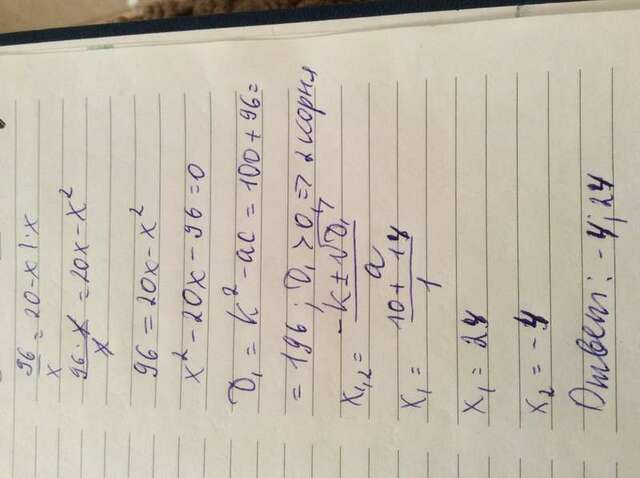 96/x = 20-x |·x
96·x/x = 20x-x²
96 = 20x-x²
x²-20x-96=0
D₁ = k²-ac = 100+96=
= 196; D₁>0, => 2 корня
x₁,₂ = -k±√D₁/a
x₁ = 10+14/1
x₁ = 24
x₂ = -4
Ответ: -4; 24